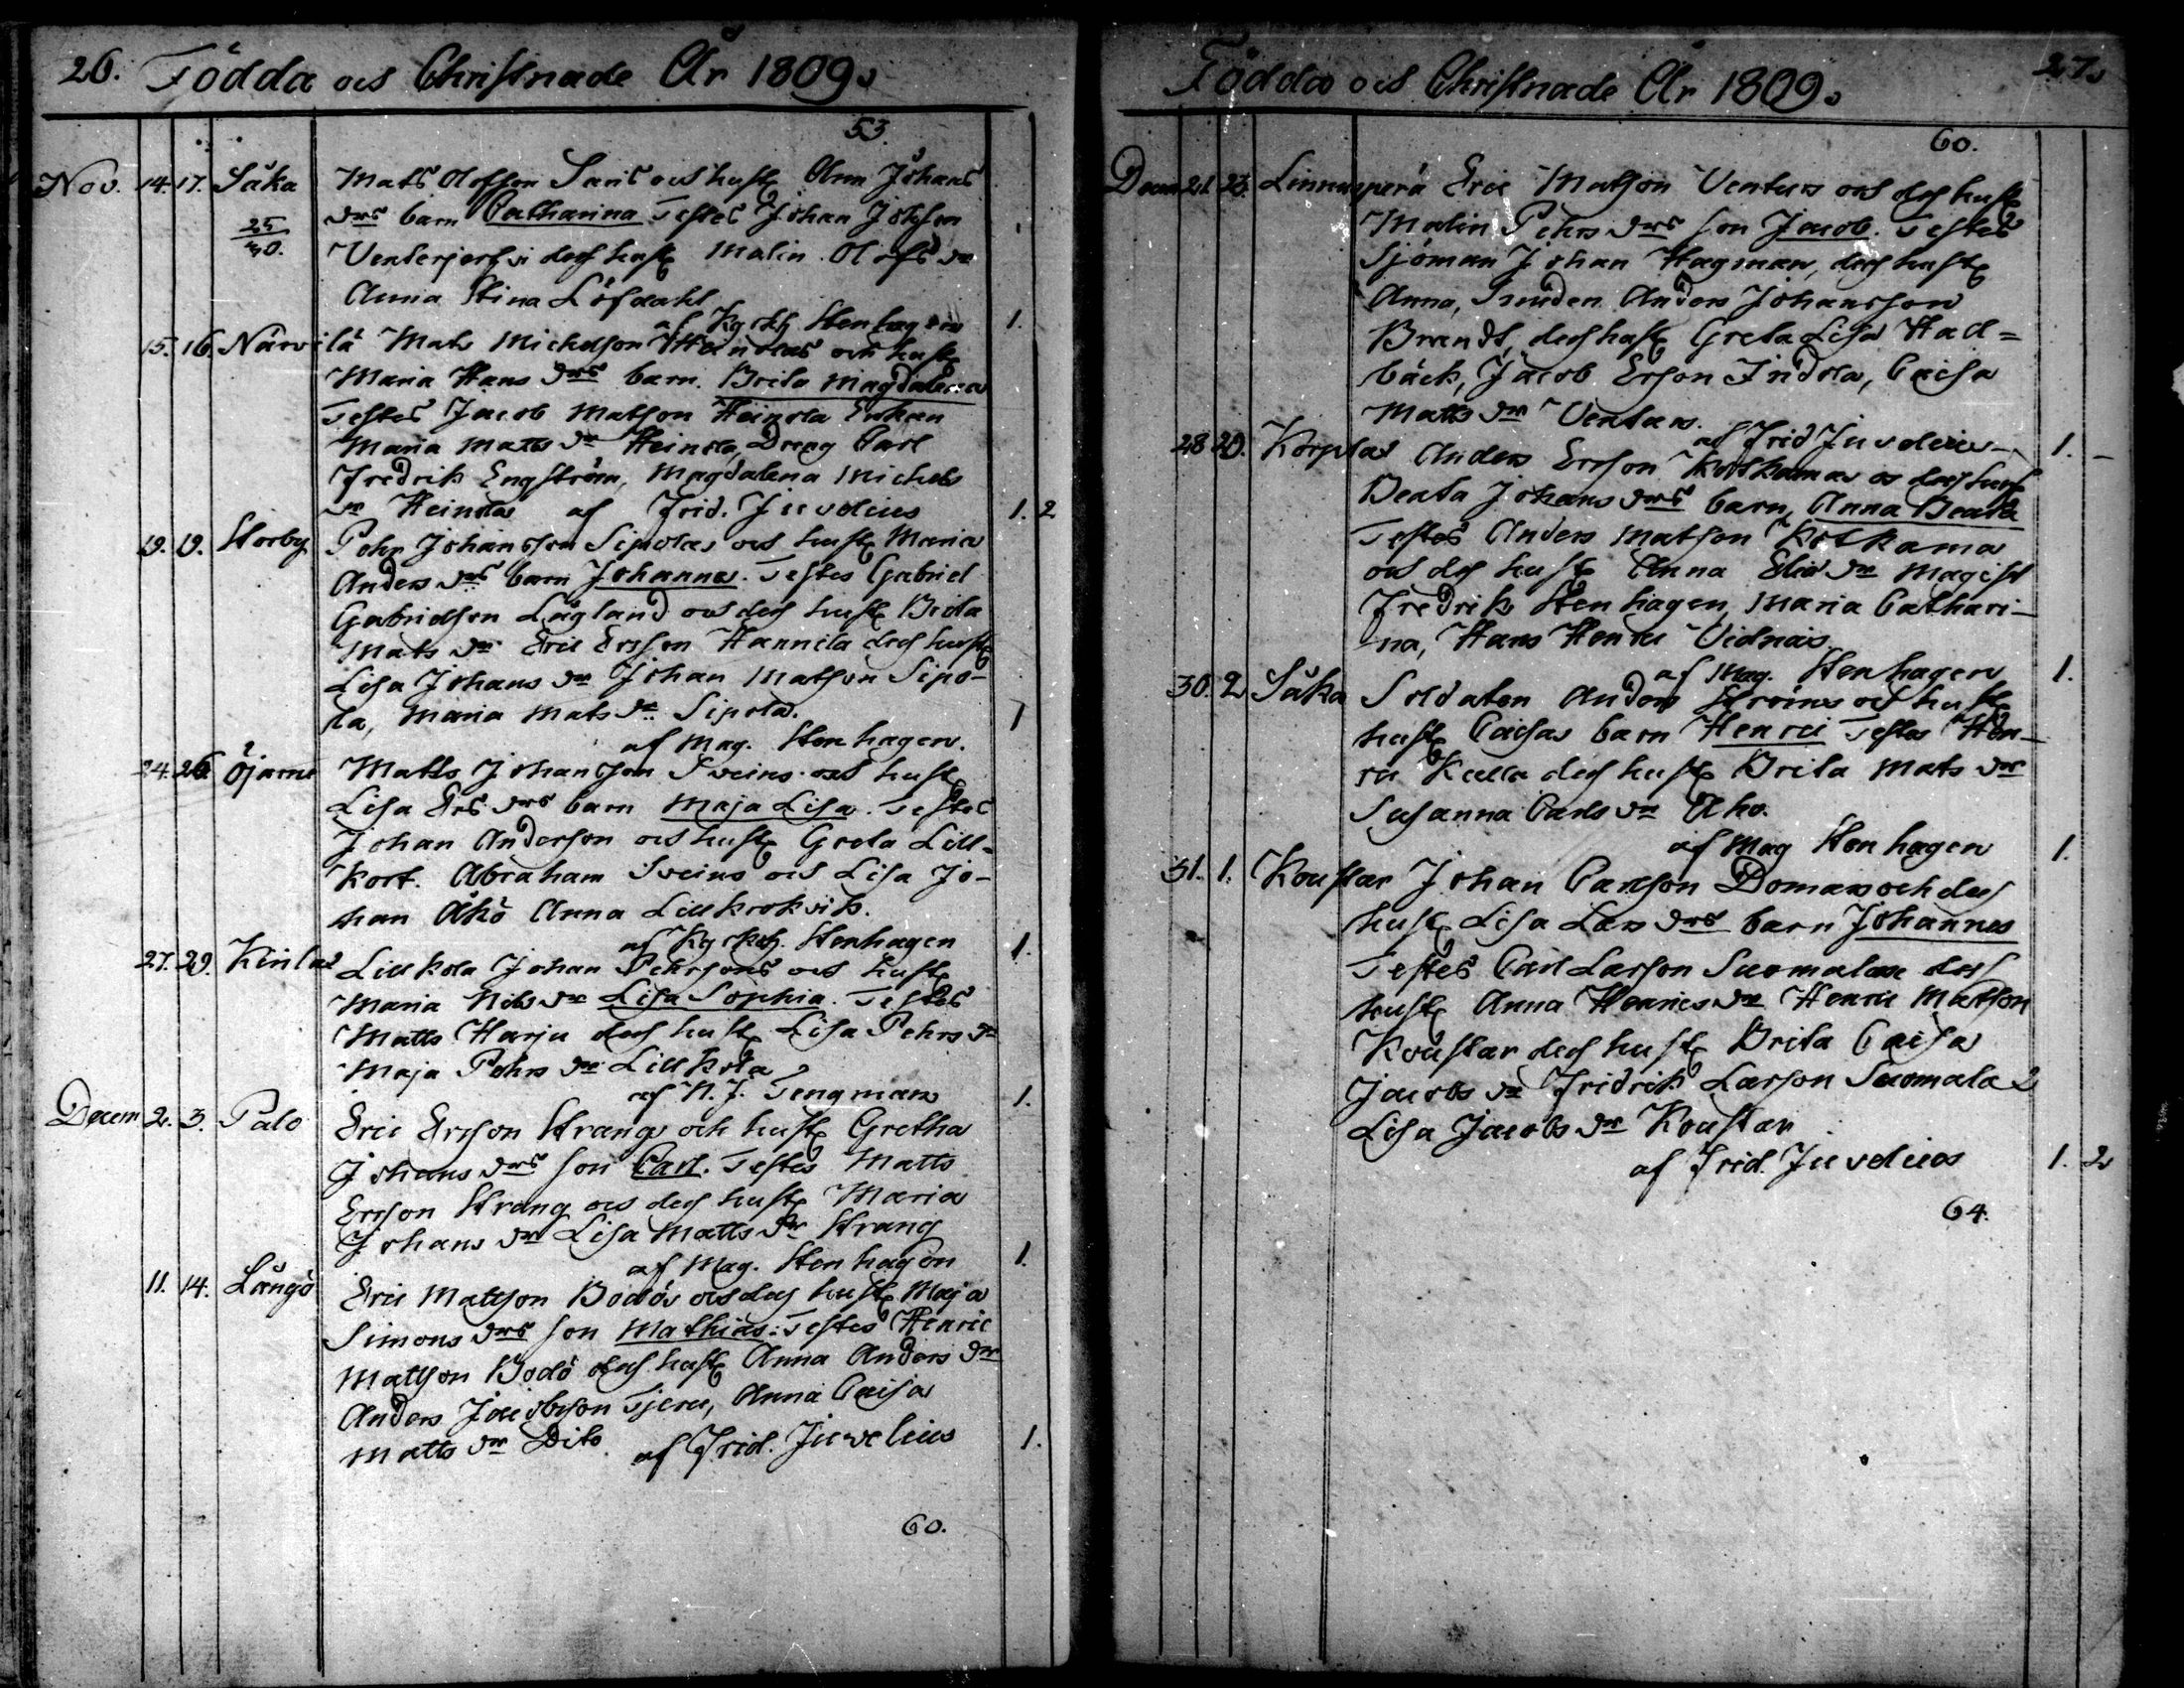 26. Födda och Christnade År 1809.
53.
Nov. 14. 17. Såka Mats Olofsson Saris och hust. Anna Johans
25/40. drs barn Catharina Testes Johan Johsson
Venterjerfvi dess hust. Malin Olofs dr
Anna Stina Löfdahl
af Kyrkh. Stenhagen 1.
15. 16. Närvilä Mats Michelsson Heinolas och hust.
Maria Hans drs barn. Brita Magdalena
Testes Jacob Matsson Heinola Enkan
Maria Matts dr Heinola, Dreng Carl
Fredrik Engström, Magdalena Michels
dr Heinola af Frid. Juvelius 1. 2
19. 19. Storby Pehr Johansson Sipolas och hust. Maria
Anders drs barn Johannes. Testes Gabriel
Gabrielsson Lågland och dess hust. Brita
Mats dr Eric Ersson Hannila dess hust.
Lisa Johans dr Johan Matsson Sipo-
la, Maria Mats dr Sipola. 1
af Mag. Stenhagen.
24. 26. Öjarne Matts Johansson Sveins och hust.
Lisa Ers drs barn Maja Lisa. Testes
Johan Andersson och hust. Greta Lill-
kort. Abraham Sveins och Lisa Jo-
han Åkö Anna Lillkrokvik.
af Kyrkoh. Stenhagen 1.
27. 29. Kinlas Lillkola Johan Pehrssons och hust.
Maria Nils dr Lisa Sophia. Testes
Matts Harju dess hust. Lisa Pehrs dr
Maja Pehrs dr Lillkola
af N. J. Tengman 1.
Decem 2. 3. Palo Eric Ersson Strangs och hust. Gretha
Johans drs son Carl. Testes Matts
Ersson Strang och dess hust. Maria
Johans dr Lisa Matts dr Strang
af Mag. Stenhagen 1.
11. 14. Långö Eric Mattsson Bodös och dess hust. Maja
Simons drs son Mathias: Testes Henric
Mattsson Bodö dess hust. Anna Anders dr
Anders Jacobsson Tjeru, Anna Caisa
Matts dr Dito. af Frid. Juvelius 1.
60.
Födda och Christnade År 1809. 27.
60.
Decem 21. 23. Linnunperä Eric Matsson Ventus och dess hust.
Malin Pehrs drs son Jacob. Testes
Sjöman Johan Hagman, dess hust.
Anna, Anders Johansson
Brandt, dess hust. Greta Lisa Had-
bäck, Jacob Ersson Indola, Caisa
Matts dr Ventus.
af Frid Juvelius 1. -
28 29. Korplax Anders Ersson Kotkamas och dess hust.
Beata Johans drs barn, Anna Beata
Testes Anders Matsson Kotkama
och dess hust. Anna Elia dr Magist
Fredrik Stenhagen, Maria Cathari-
na, Hans Henric Vidnäs.
af Mag. Stenhagen 1.
30. 2 Såka Soldaten Anders Ströms och hust.
hust. Caisas barn Henric Testes Hen-
ric Kalla dess hust. Brita Mats dr
Susanna Carls dr Aho.
af Mag Stenhagen 1.
31. 1. Koustar Johan Carlsson Domars och dess
hust. Lisa Lars drs barn Johannes
Testes Carl Larsson Suomalax dess
hust. Anna Henrics dr Henric Matsson
Koustar dess hust. Brita Caisa
Jacobs dr Fridrik Larsson Suomala &
Lisa Jacobs dr Koustar
af Frid. Juvelius 1. 2
64.